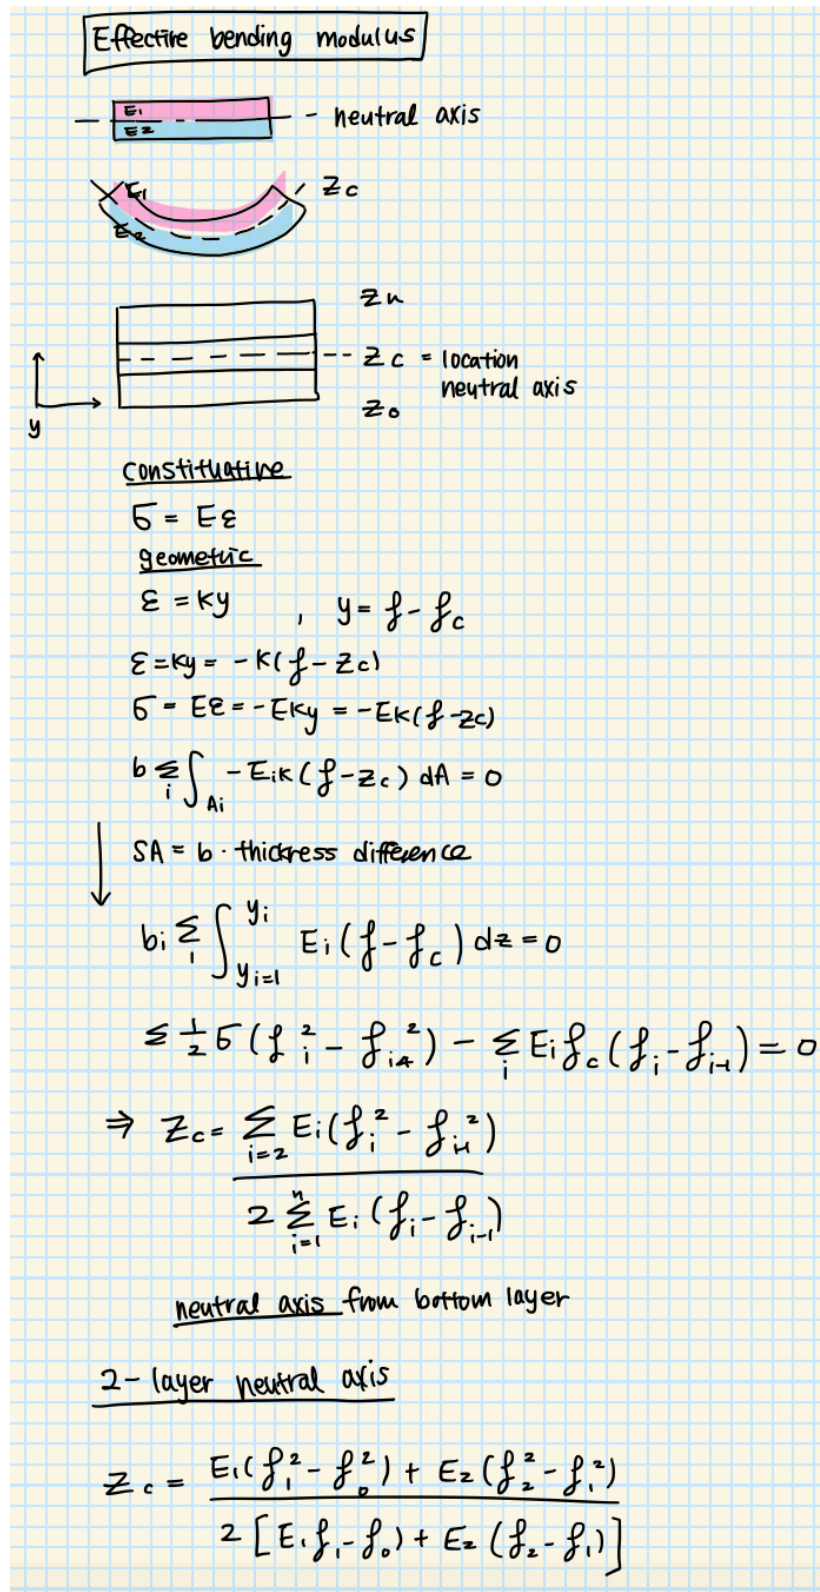 Effective bending modulus
E₁
E₂
- neutral axis
E₁
Zc
E₂
Zn
Zc = location
neutral axis
Z₀
y
constituative
σ = Eε
geometric
ε = Ky , y = f - f_c
ε = Ky = -K(f - Zc)
σ = Eε = -EKy = -EK(f - Zc)
b Σ_i ∫_Ai -E_i K (f - Zc) dA = 0
SA = b · thickness difference
b_i Σ_i ∫_{y_i=1}^{y_i} E_i (f - f_c) dz = 0
Σ ½ σ (f_i² - f_i-1²) - Σ_i E_i f_c (f_i - f_i-1) = 0
⇒ Zc = Σ_{i=2} E_i (f_i² - f_i-1²)
2 Σ_{i=1}^{n} E_i (f_i - f_i-1)
neutral axis from bottom layer
2-layer neutral axis
Zc = E₁(f₁² - f₀²) + E₂(f₂² - f₁²)
2 [E₁f₁ - f₀) + E₂ (f₂ - f₁)]